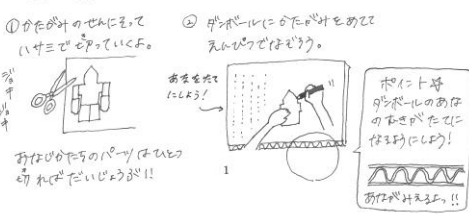 ①かたがみのせんにそって
ハサミで切っていくよ。
ジョキ
ジョキ
おなじかたちのパーツはひとつ
切ればだいじょうぶ!!
②ダンボールにかたがみをあてて
えんぴつでなぞろう。
あなをたて
にしよう!
1
ポイント☆
ダンボールのあな
のむきがたてに
なるようにしよう!
あながみえるよっ!!